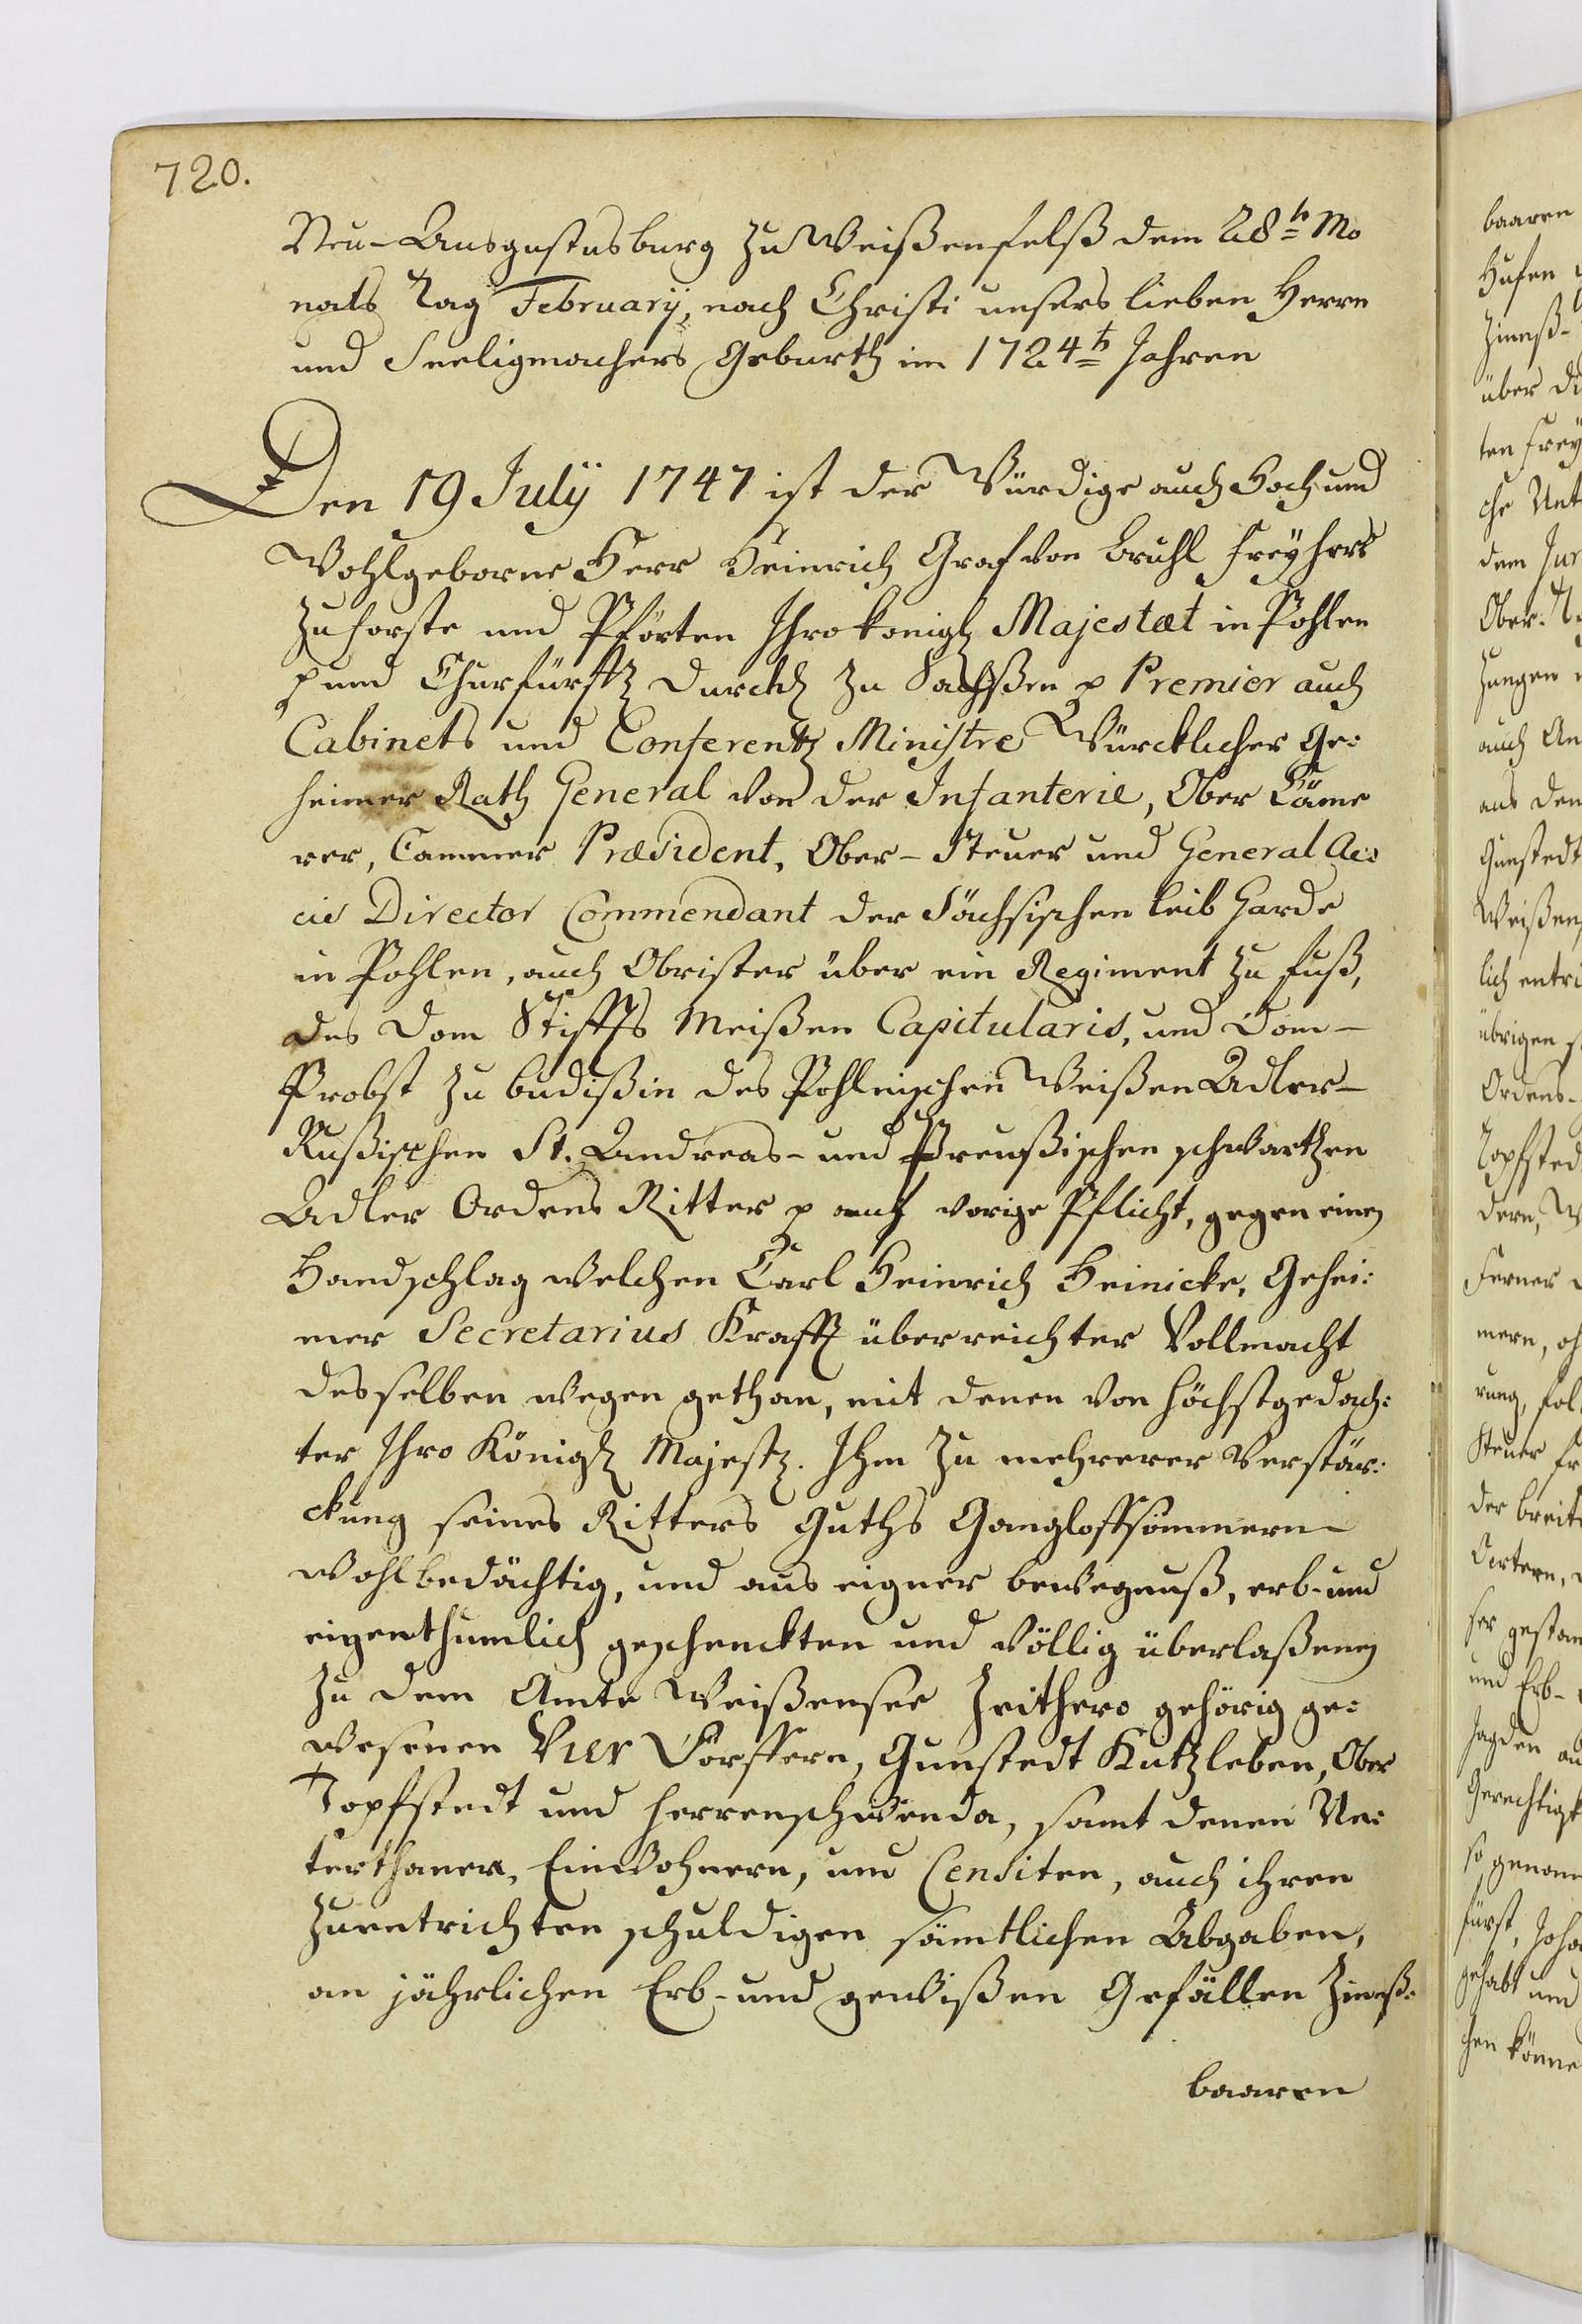 720.
Neu-Ausgustusburg zu Weißenfelß dem 28t. Mo
nats Tag February, nach Christi unsers lieben Herrn
und Seeligmachers Geburth im 1724t. Jahren
Den 19 July 1747 ist der Würdige auch Hoch und
Wohlgeborne Herr Heinrich Graf von Bruhl Freyherr
zu Forste und Pförten Ihro konigl Majestæt in Pohlen
p und Churfürstl Durchl zu Sachßen p Premier auch
Cabinets und Conferentz Ministre Würcklicher Ge:
heimer Rath General von der Infanterie, Ober Cäme
rer, Cammer Præsident, Ober-Steuer und General Ac:
cis Director Commendant der Sächsischen Leib Garde
in Pohlen, auch Obrister über ein Regiment zu Fuß,
des Dom Stiffts Meißen Capitularis, und Dom-
Probst zu Budißin des Pohlnischen Weißen Adler-
Rußischen St. Andreas- und Preußischen schwartzen
Adler Ordens Ritter p auf vorige Pflicht, gegen einen
Handschlag welchen Carl Heinrich Heinicke, Gehei:
mer Secretarius Krafft überreichter Vollmacht
desselben wegen gethan, mit denen von höchstgedach:
ter Ihro Königl Majest. Ihm zu mehrerer Verstär:
ckung seines Ritters Guths Gangloffsömmern
wohlbedächtig, und aus eigner bewegnuß, erb- und
eigenthumlich geschenckten und völlig überlaßenen
zu dem Amte Weißensee Zeithero gehörig ge:
wesenen Vier Dörffern, Gunstedt Kutzleben, Ober
Topfstedt und Herrenschwenda, samt denen Un:
terthanen, Einwohnern, und Censiten, auch ihren
zuentrichten schuldigen sämtlichen Abgaben,
an jährlichen Erb- und gewißen Gefällen Zinnß:
baaren
baaren
Hufen
Zinnß-
über di
ten Frey
che Unt
dem Jur
Ober-
zungen
auch An
aus den
Gunstedt
Weißen
lich entri
übrigen
Ordens-
Topfsted
dern, W
Ferner
mern, oh
rung, fol
Steuer fr
der breit
Oertern,
ser gestan
und Erb-
Jagden au
Gerechtigk
so genan
fürst, Joha
gehabt und
hen könne